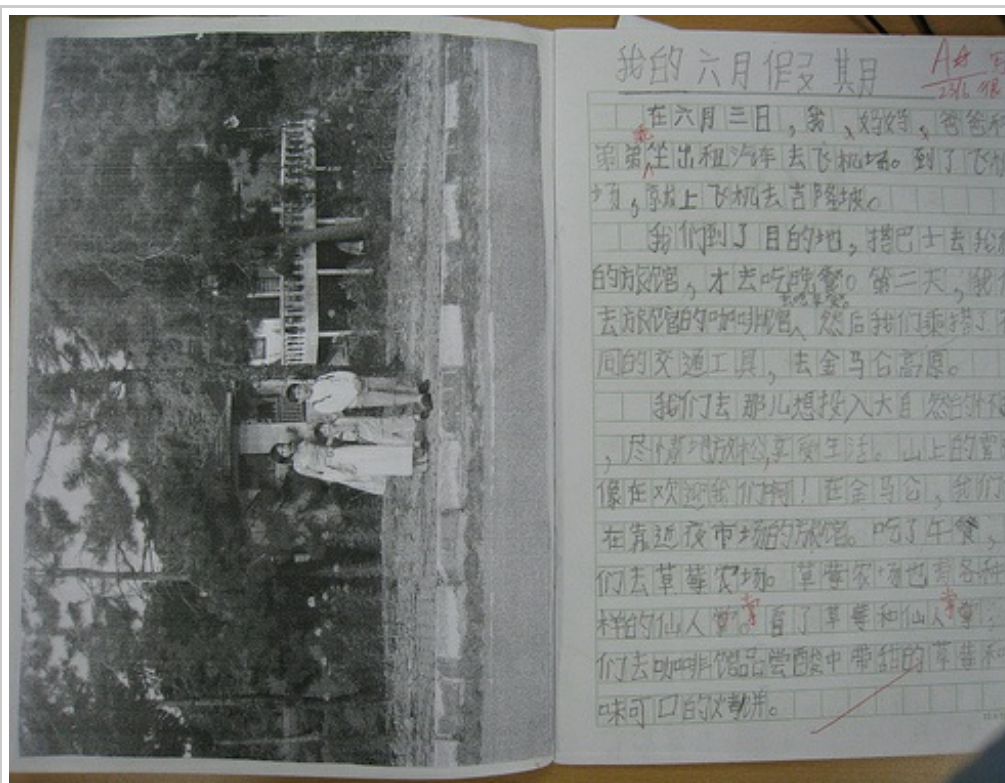 我的六月假期
A* 写
23/6 很
在六月三日，我、妈妈、爸爸和
弟弟坐出租汽车去飞机场。到了飞机
场，就上飞机去吉隆坡。
我们到了目的地，搭巴士去我们
的旅馆，才去吃晚餐。第二天，我们
去旅馆的咖啡馆，然后我们乘搭了
同的交通工具，去金马仑高原。
我们去那儿想投入大自然的怀
，尽情地放松，享受生活。山上的
像在欢迎我们啊！在金马仑，我们
在靠近夜市场的旅馆。吃了午餐，
们去草莓农场。草莓农场也有各种
样的仙人掌。看了草莓和仙人掌，
们去咖啡馆品尝酸中带甜的草莓和
味可口的烤饼。